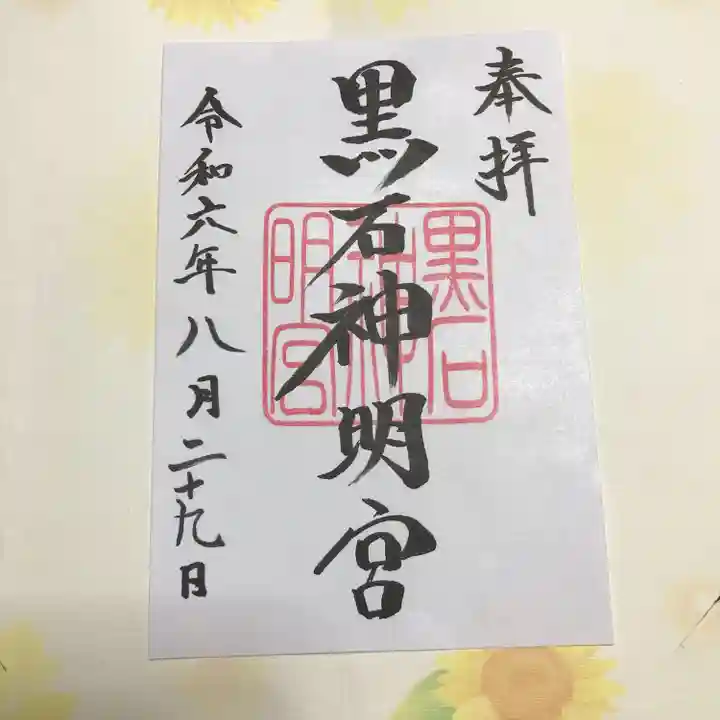 奉拝
黒石神明宮
黒石
神明宮
令和六年八月二十九日